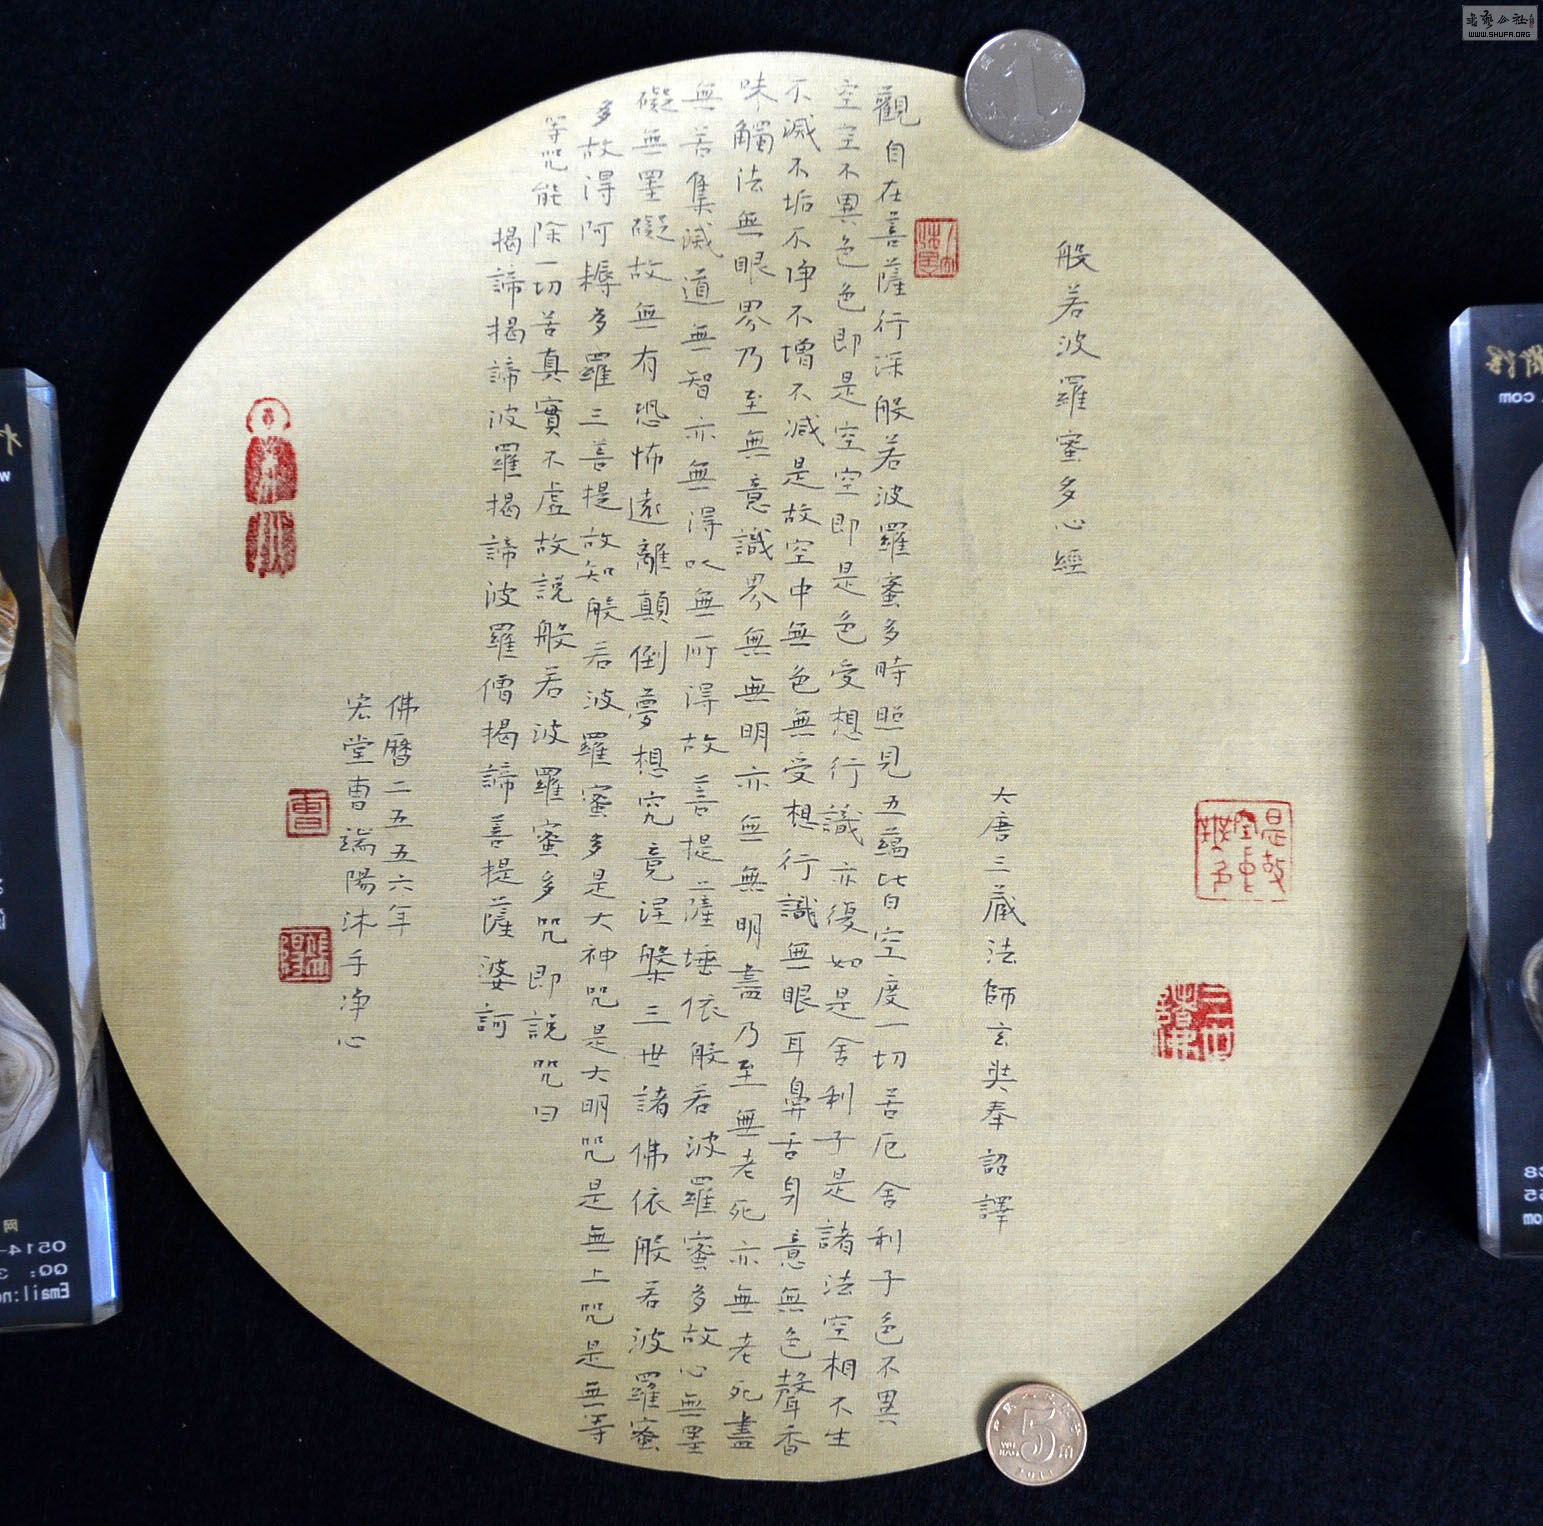 般若波羅蜜多心經
大唐三藏法師玄奘奉詔譯
觀自在菩薩行深般若波羅蜜多時照見五蘊皆空度一切苦厄舍利子色不異
空空不異色色即是空空即是色受想行識亦復如是舍利子是諸法空相不生
不滅不垢不净不增不減是故空中無色無受想行識無眼耳鼻舌身意無色聲香
味觸法無眼界乃至無意識界無無明亦無無明盡乃至無老死亦無老死盡
無苦集滅道無智亦無得以無所得故菩提薩埵依般若波羅蜜多故心無罣
礙無罣礙故無有恐怖遠離顛倒夢想究竟涅槃三世諸佛依般若波羅蜜
多故得阿耨多羅三菩提故知般若波羅蜜多是大神咒是大明咒是無上咒是無等
等咒能除一切苦真實不虛故説般若波羅蜜多咒即説咒曰
揭諦揭諦波羅揭諦波羅僧揭諦菩提薩婆訶
佛曆二五五六年
宏堂曹端陽沐手净心
是故空中無色
曹
端陽
1
5角
2011
WWW.SHUFA.ORG
0514-
QQ:3
Email:n
.com